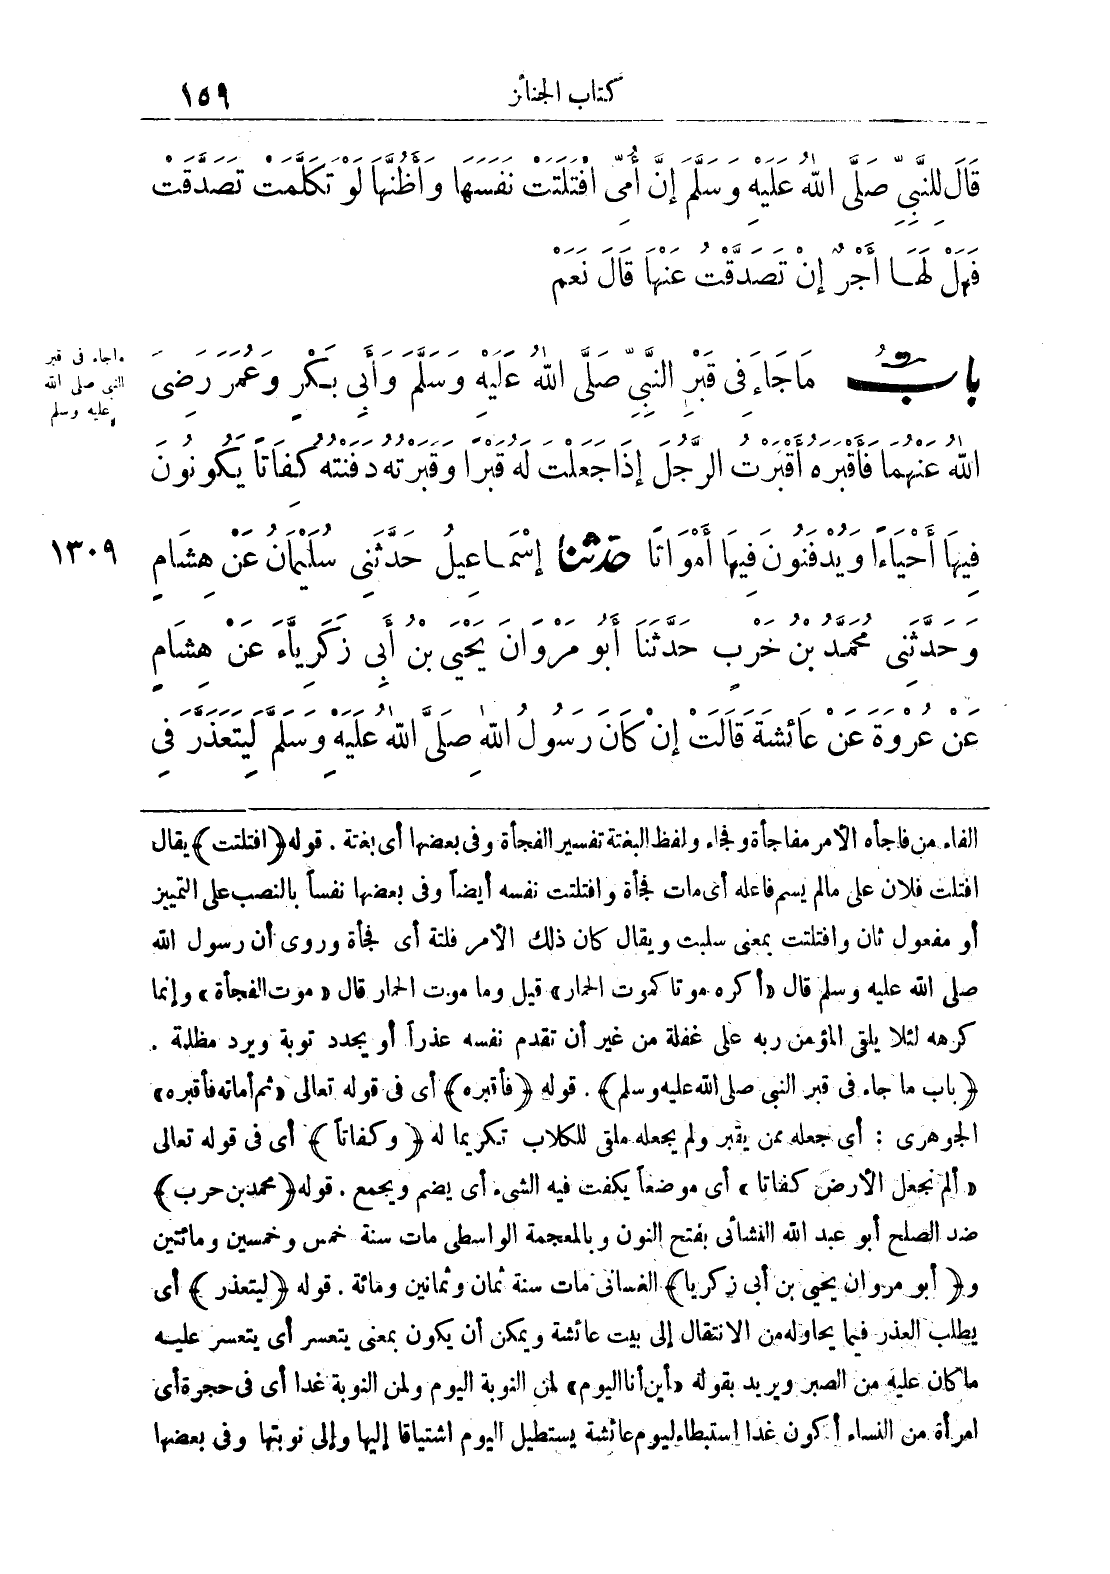 كتاب الجنائز ١٥٩
قَالَ لِلنَّبِيِّ صَلَّى اللهُ عَلَيْهِ وَسَلَّمَ إِنَّ أُمِّى افْتُلِتَتْ نَفْسَهَا وَأَظُنُّهَا لَوْ تَكَلَّمَتْ تَصَدَّقَتْ
فَهَلْ لَهَا أَجْرٌ إِنْ تَصَدَّقْتُ عَنْهَا قَالَ نَعَمْ
بابُ مَاجَاءَ فِى قَبْرِ النَّبِيِّ صَلَّى اللهُ عَلَيْهِ وَسَلَّمَ وَأَبِى بَكْرٍ وَعُمَرَ رَضِىَ
ماجاء فى قبر
النبى صلى الله
عليه وسلم
اللهُ عَنْهُمَا فَأَقْبَرَهُ أَقْبَرْتُ الرَّجُلَ إِذَا جَعَلْتَ لَهُ قَبْرًا وَقَبَرْتُهُ دَفَنْتُهُ كِفَاتًا يَكُونُونَ
فِيهَا أَحْيَاءً وَيُدْفَنُونَ فِيهَا أَمْوَاتًا حدثنا إِسْمَاعِيلُ حَدَّثَنِى سُلَيْمَانُ عَنْ هِشَامٍ ١٣٠٩
وَحَدَّثَنِى مُحَمَّدُ بْنُ حَرْبٍ حَدَّثَنَا أَبُو مَرْوَانَ يَحْيَى بْنُ أَبِى زَكَرِيَّاءَ عَنْ هِشَامٍ
عَنْ عُرْوَةَ عَنْ عَائِشَةَ قَالَتْ إِنْ كَانَ رَسُولُ اللهِ صَلَّى اللهُ عَلَيْهِ وَسَلَّمَ لَيَتَعَذَّرُ فِى
الفاء من فاجأه الأمر مفاجأة وفجاء ولفظ البغتة تفسير الفجأة وفى بعضها أى بغتة . قوله ﴿افتلتت﴾ يقال
افتلت فلان على مالم يسم فاعله أى مات فجأة وافتلتت نفسه أيضاً وفى بعضها نفساً بالنصب على التمييز
أو مفعول ثان وافتلتت بمعنى سلبت ويقال كان ذلك الأمر فلتة أى فجأة وروى أن رسول الله
صلى الله عليه وسلم قال «أكره موتا كموت الحمار» قيل وما موت الحمار قال «موت الفجأة» وإنما
كرهه لئلا يلقى المؤمن ربه على غفلة من غير أن تقدم نفسه عذراً أو يجدد توبة ويرد مظلمة .
﴿باب ما جاء فى قبر النبي صلى الله عليه وسلم﴾ . قوله ﴿فأقبره﴾ أى فى قوله تعالى «ثم أماته فأقبره»
الجوهرى : أى جعله ممن يقبر ولم يجعله ملقى للكلاب تكريما له ﴿وكفاتاً﴾ أى فى قوله تعالى
«ألم نجعل الأرض كفاتا» أى موضعاً يكفت فيه الشىء أى يضم ويجمع . قوله ﴿محمد بن حرب﴾
ضد الصلح أبو عبد الله النشائى بفتح النون وبالمعجمة الواسطى مات سنة خمس وخمسين ومائتين
و﴿أبو مروان يحيى بن أبى زكريا﴾ الغسانى مات سنة ثمان وثمانين ومائة . قوله ﴿ليتعذر﴾ أى
يطلب العذر فيما يحاوله من الانتقال إلى بيت عائشة ويمكن أن يكون بمعنى يتعسر أى يتعسر عليه
ماكان عليه من الصبر ويريد بقوله «أين أنا اليوم» لمن النوبة اليوم ولمن النوبة غدا أى فى حجرة أى
امرأة من النساء أكون غدا استبطاء ليوم عائشة يستطيل اليوم اشتياقا إليها وإلى نوبتها وفى بعضها